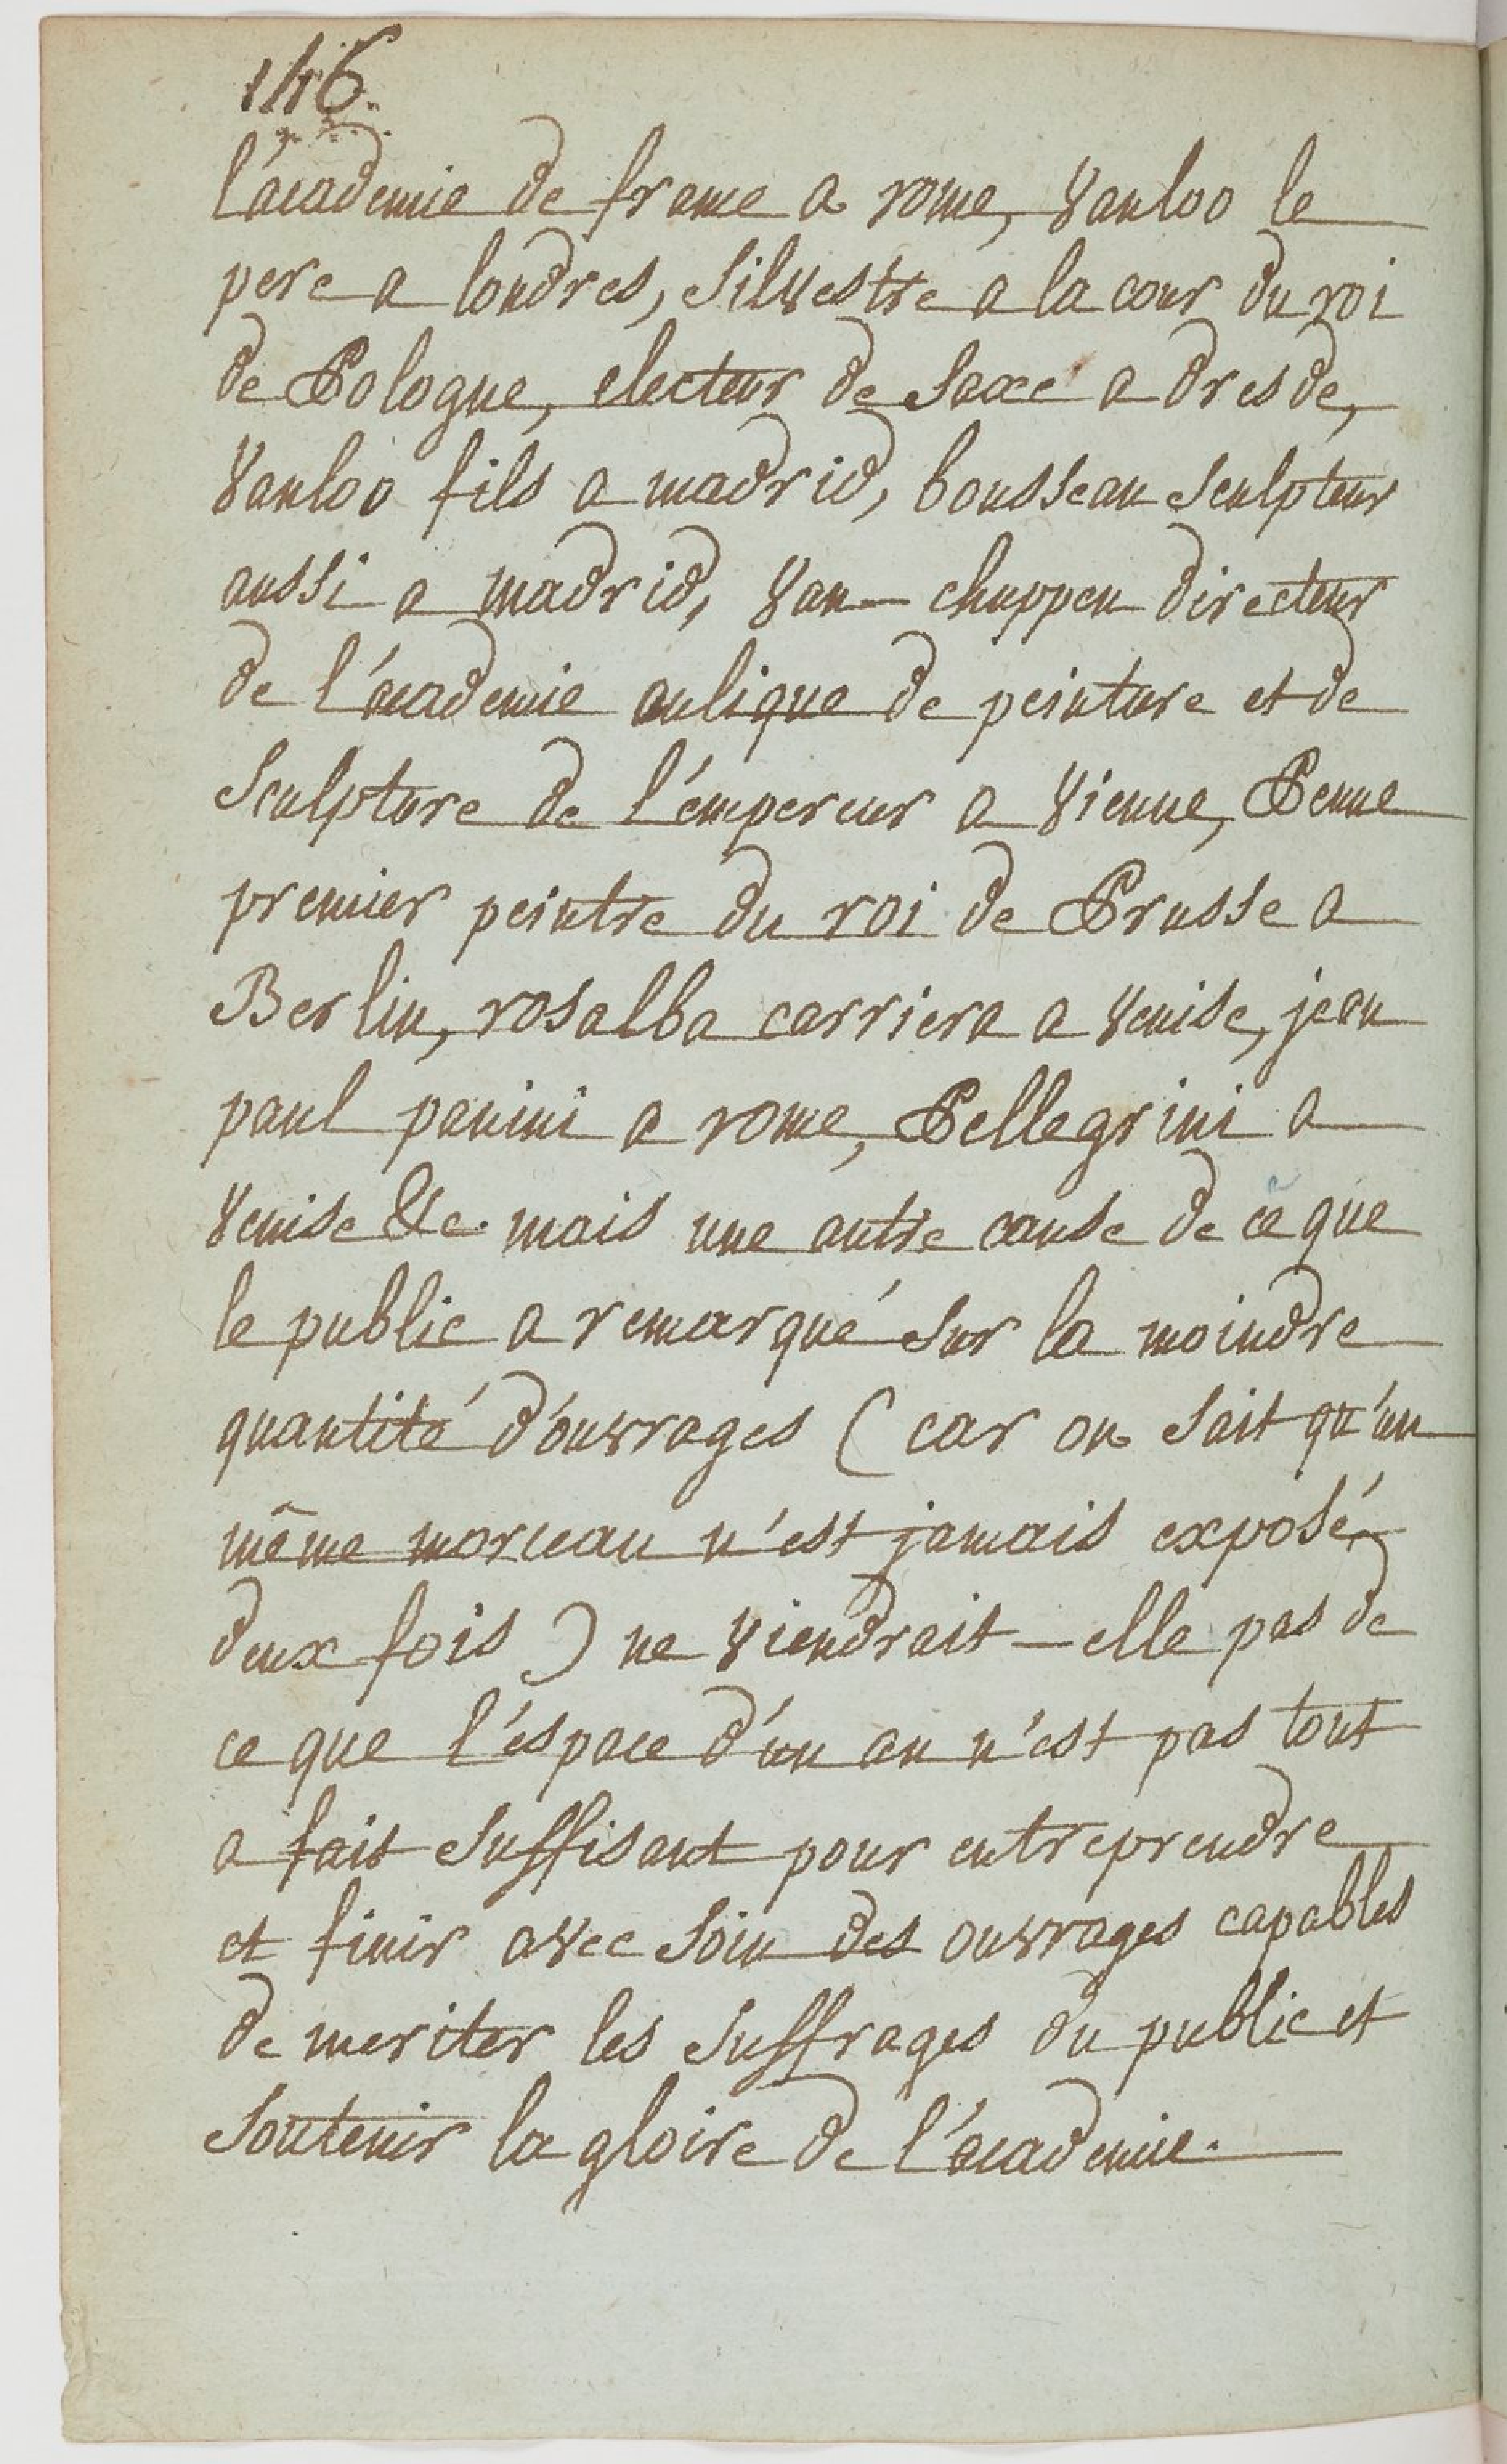 146.
l'académie de france a rome, Vanloo le
pere a londres, Silvestre a la cour du roi
de Pologne, electeur de Saxe a dresde,
Vanloo fils a madrid, bousseau Sculpteur
aussi a madrid, Van-chuppen directeur
de l'académie aulique de peinture et de
Sculpture de l'émpereur a Vienne, Penne
premier peintre du roi de Prusse a
Berlin, rosalba carriera a Venise, jean
paul panini a rome, Pellegrini a
Venise &c. mais une autre cause de ce que
le public a remarqué Sur la moindre
quantité d'ouvrages (car on Sait qu'un
même morceau n'est jamais exposé
deux fois) ne Viendrait-elle pas de
ce que l'éspace d'un an n'est pas tout
a fait Suffisant pour entreprendre
et finir avec Soin des ouvrages capables
de meriter les Suffrages du public et
Soutenir la gloire de l'académie.